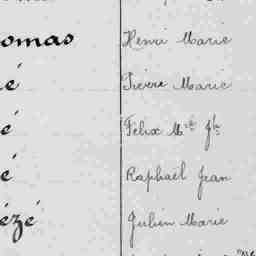 omas Henri Marie
é Pierre Marie
é Félix Mie Jh
é Raphaël Jean
ézé Julien Marie